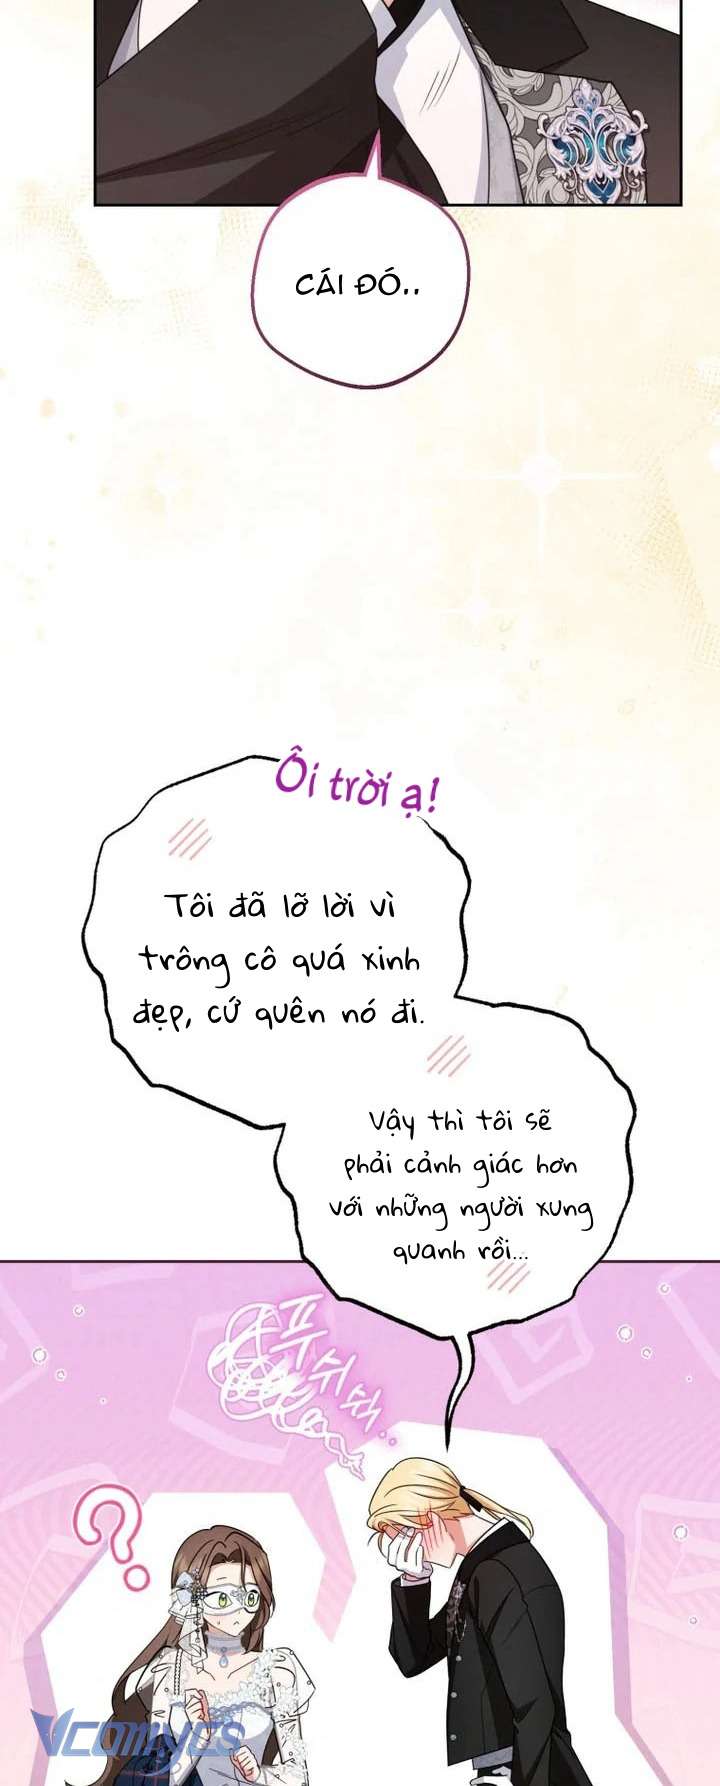 CÁI ĐÓ..
Ôi trời ạ!
Tôi đã lỡ lời vì
trông cô quá xinh
đẹp, cứ quên nó đi.
Vậy thì tôi sẽ
phải cảnh giác hơn
với những người xung
quanh rồi...
푸쉬쉬..
?
Vcomycs